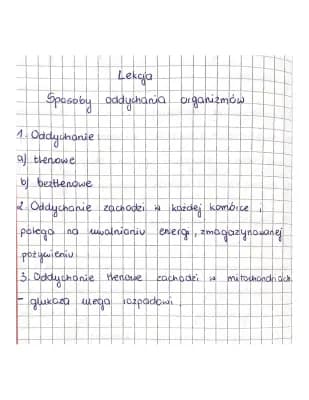 Lekcja
Sposoby oddychania organizmów
1. Oddychanie
a) tlenowe
b) beztlenowe
2. Oddychanie zachodzi w każdej komórce i
polega na uwalnianiu energi, zmagazynowanej
pożywieniu
3. Oddychanie tlenowe zachodzi w mitochondriach
- glukoza ulega rozpadowi